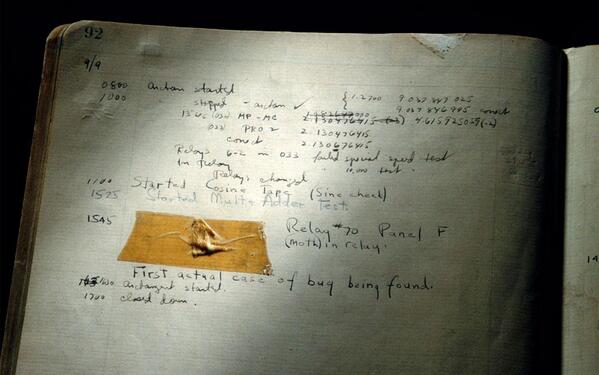 92
9/9
0800 antan started
1000 stopped - antan ✓ { 1.2700 9.037 847 025
9.037 846 995 conect
13"uc (032) MP-MC 4.615925059(-2)
(033) PRO 2 2.130476415
conect 2.130676415
Relays 6-2 in 033 failed special speed test
in relay " 10,000 test.
Relays changed
1100 Started Cosine Tape (Sine check)
1525 Started Mult+ Adder Test.
1545 Relay #70 Panel F
(moth) in relay.
First actual case of bug being found.
1630 antangent started.
1700 closed down.